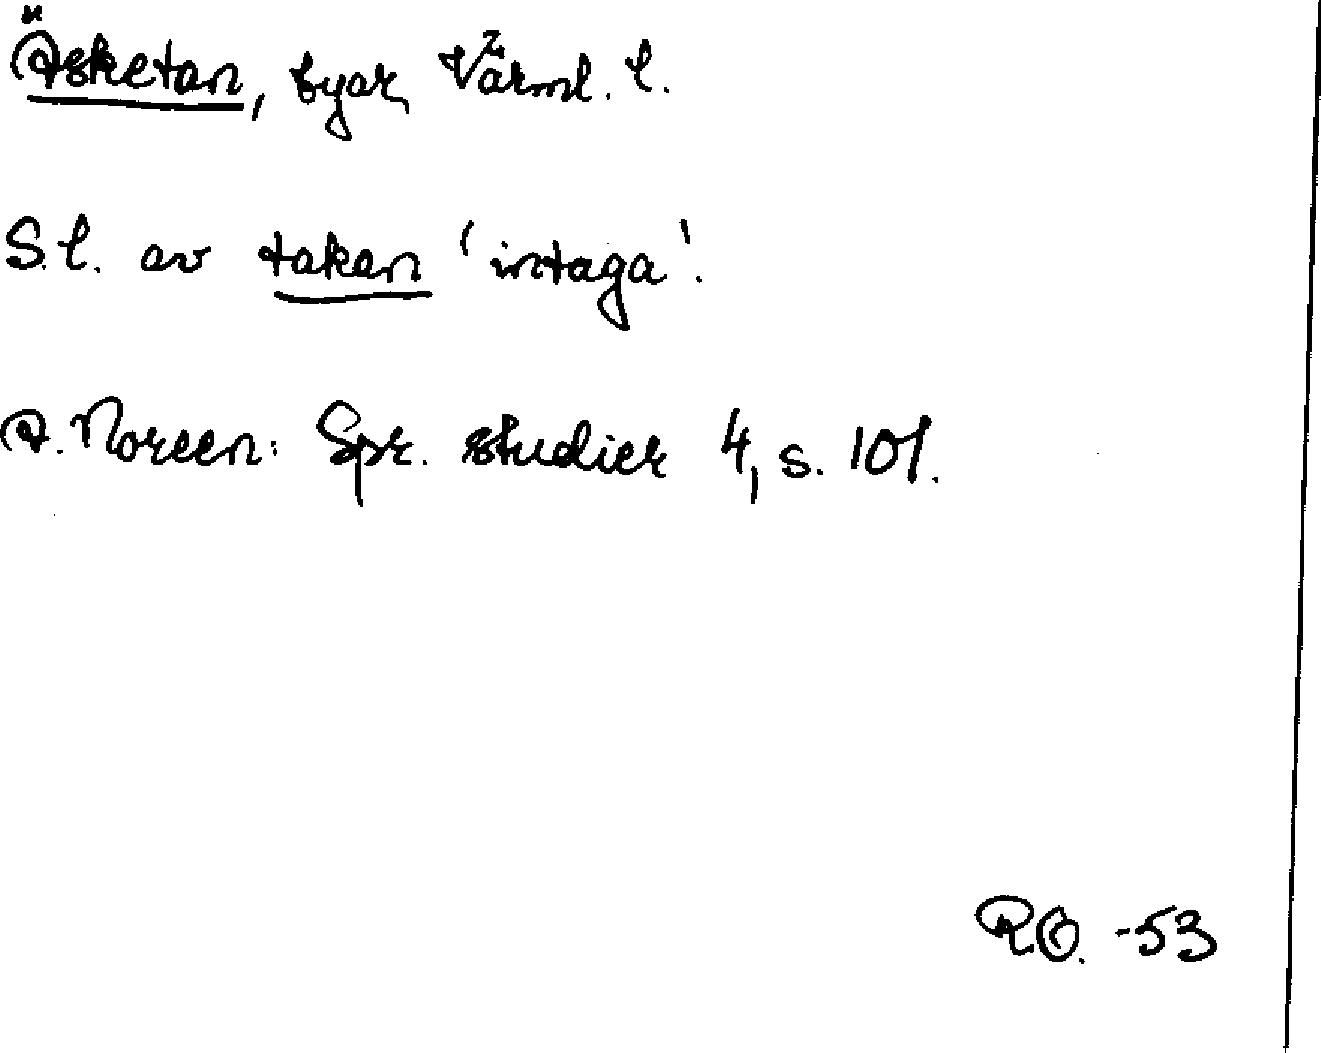 Äsketan, byar, Värml. l.
S.l. av takan 'intaga'.
A. Noreen: Spr. studier 4, s. 101.
RO. -53